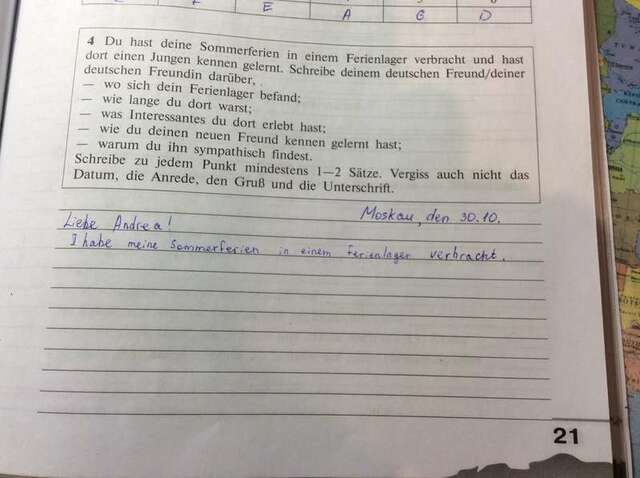 E A G D
4 Du hast deine Sommerferien in einem Ferienlager verbracht und hast
dort einen Jungen kennen gelernt. Schreibe deinem deutschen Freund/deiner
deutschen Freundin darüber,
— wo sich dein Ferienlager befand;
— wie lange du dort warst;
— was Interessantes du dort erlebt hast;
— wie du deinen neuen Freund kennen gelernt hast;
— warum du ihn sympathisch findest.
Schreibe zu jedem Punkt mindestens 1—2 Sätze. Vergiss auch nicht das
Datum, die Anrede, den Gruß und die Unterschrift.
Moskau, den 30.10.
Liebe Andrea!
I habe meine Sommerferien in einem Ferienlager verbracht.
21